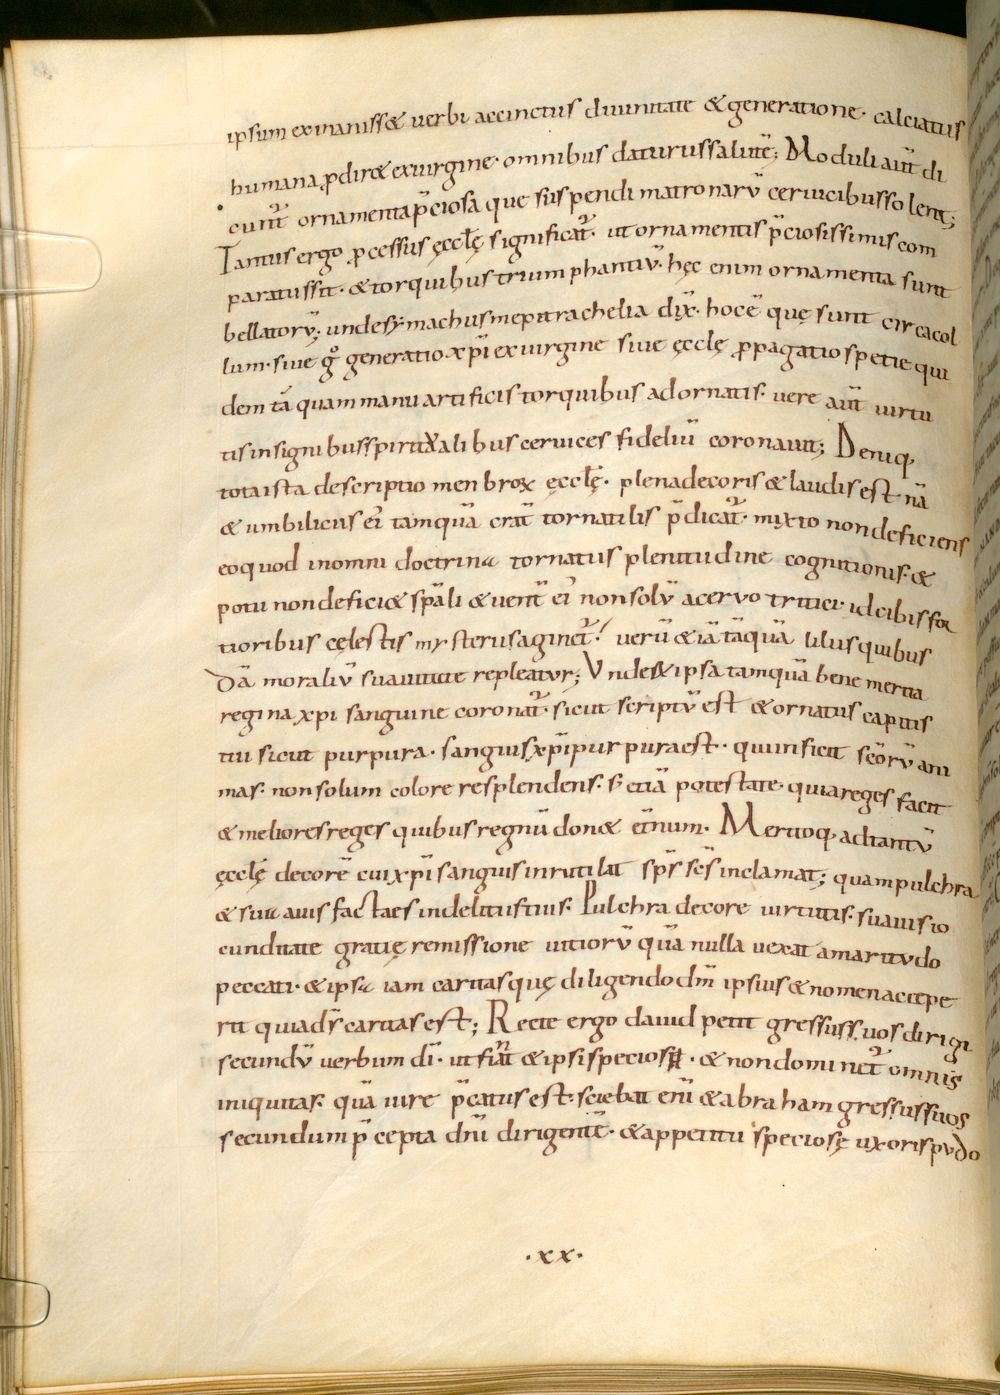 ipsum exinanisset verbi accinctus divinitate & generatione· calciatus
humana, ꝓdir& ex virgine· omnibus daturus salutē; Moduli aut̄ di
cunt᷑ ornamenta p̄ciosa que suspendi matronarū cervicibus solent;
Tantus ergo ꝓcessus ęccl̄ę significat᷑· ut ornamentis p̄ciosissimis com
paratus sit· & torquibus triumphantiū· hęc enim ornamenta sunt
bellatorū; unde symachus μεpitrachelia dix̄· hoc ē que sunt circa col
lum· sive gͦ generatio xp̄i ex virgine sive ęccl̄ę ꝓpagatio spetie qui
dem tā quam manu artificis torquibus adornatis· vere aut̄ virtu
tis insignibus spiritalibus cervices fideliū coronavit; Deniq,
tota ista descriptio menbroꝝ ęccl̄ę· plena decoris & laudis est nā
& umbilicus ei᷑ tamquā crat̄ tornatilis p̄dicat᷑· mixto non deficiens
eo quod in omni doctrina tornatus plenitudine cognitionis· &
potu non defici& sp̄ali & vent̄ ei᷑ non solū acervo tritici· id cibis for
tioribus cęlestis mysterii saginet᷑! verū & iā tāquā liliis quibus
dā moraliū suavitate repleatur; Unde & ipsa tamquā bene merita
regina xp̄i sanguine coronat᷑· sicut scriptū est & ornatus capitis
tui sicut purpura· sanguis xp̄i purpura est· qui inficit sc̄orū ani
mas· non solum colore resplendens· s; etiā potestate· quia reges facit
& meliores reges quibus regnū don& et̄num· Meritoq, ad tantū
ęccl̄ę decorē cui xp̄i sanguis inrutilat sp̄s sc̄s inclamat; quam pulchra
& suavis facta es in delitiis tuis· Pulchra decore virtutis· suavis io
cunditate gratię remissione vitiorū quā nulla vexat amaritudo
peccati· & ipsa iam caritas quę diligendo dn̄m ipsius & nomen accepe
rit quia d̄s caritas est; Recte ergo david petit gressus suos dirigi
secundū verbum dī· ut fiant & ipsi speciosi· & non dominet᷑ omnis
iniquitas· quā iure p̄catus est· sciebat enī & abraham gressus suos
secundum p̄cepta dn̄i dirigentē· & appetitu speciosę uxoris pudo
·xx·